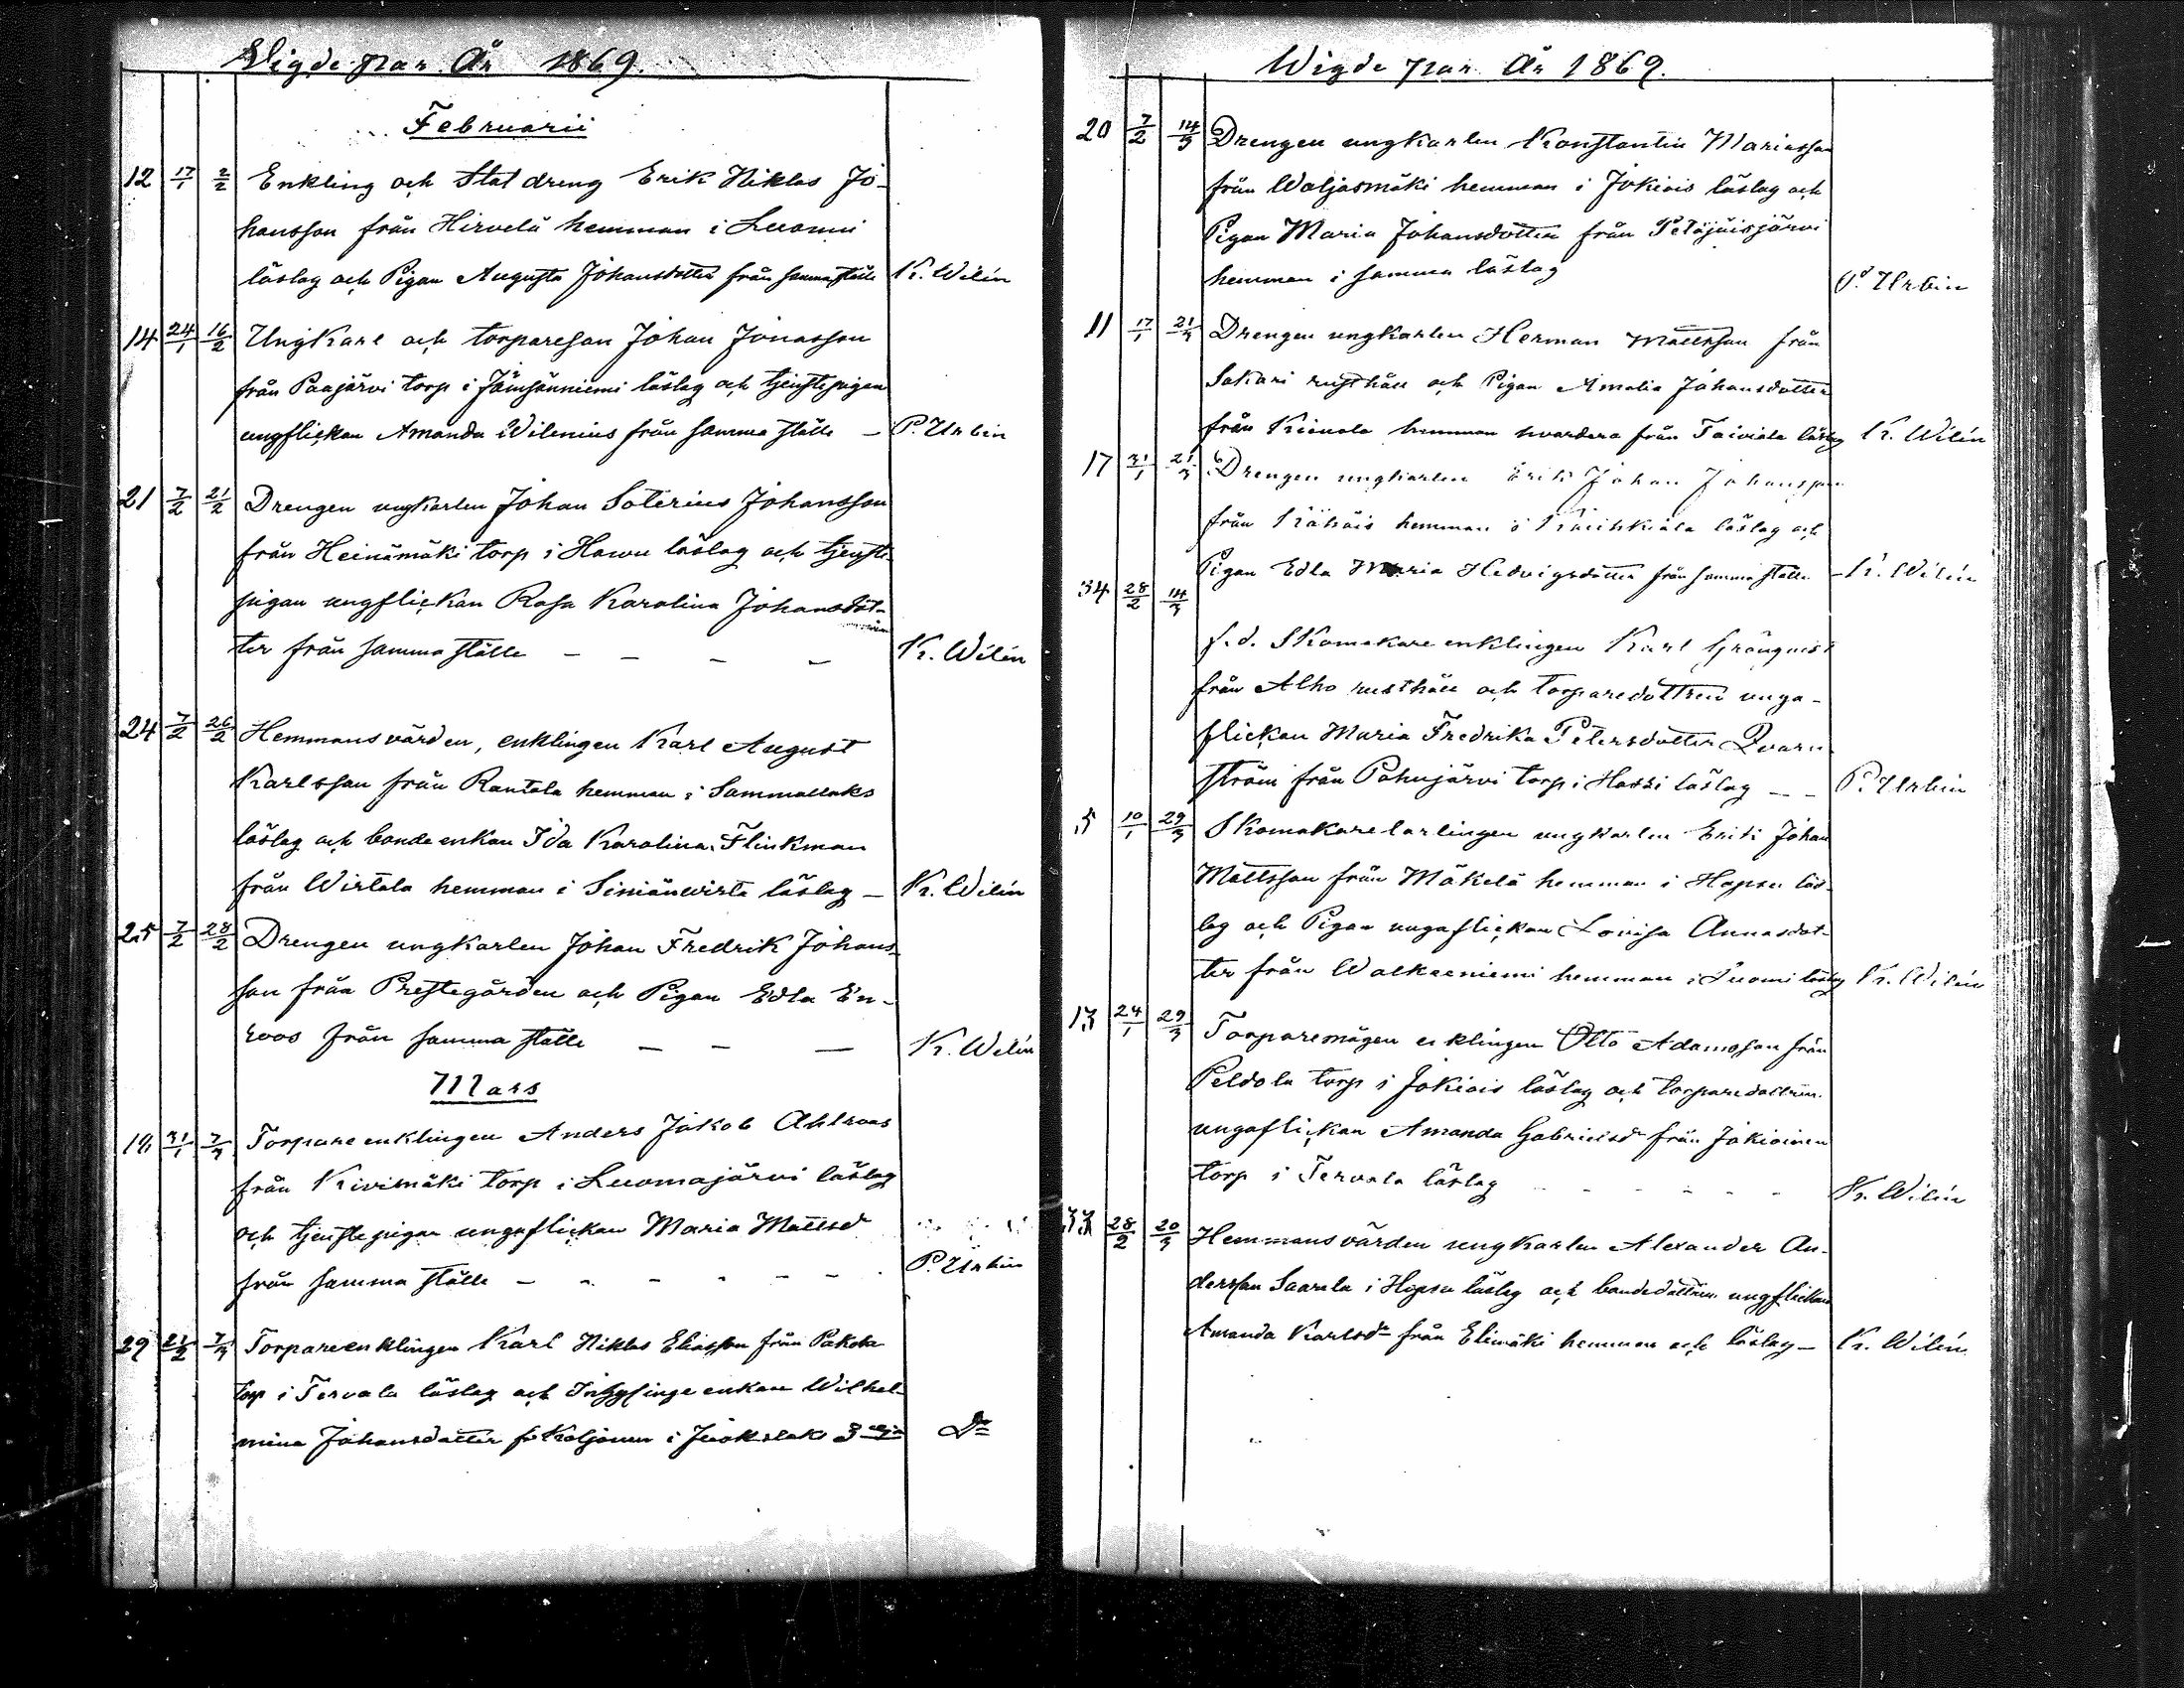 Wigde par År 1869.
Februarii
12 17/1 2/2 Enkling och Statdreng Erik Niklas Jo-
hansson från Hirvelä hemman i Luomi
läslag och Pigan Augusta Johansdotter från samma ställe Kr. Wilén
14 24/1 16/2 Ungkarl och torpareson Johan Jonasson
från Paajärvi torp i Jämsänniemi läslag och tjenstepigan
ungflickan Amanda Wilenius från samma ställe – P. Urbin
21 7/2 21/2 Drengen ungkarlen Johan Soterius Johansson
från Heinämäki torp i Hawu läslag och tjenste-
pigan ungflickan Rosa Karolina Johansdot-
ter från samma ställe – – – – Kr. Wilén
24 7/2 26/2 Hemmansvärden, enklingen Karl August
Karlsson från Rantala hemman i Sammallaks
läslag och bonde enkan Ida Karolina Flinkman
från Wirtala hemman i Siniänwirta läslag – Kr. Wilén
25 7/2 28/2 Drengen ungkarlen Johan Fredrik Johans-
son från Prestegården och Pigan Edla En-
roos från samma ställe – – – Kr. Wilén
Mars
18 31/1 7/3 Torpare enklingen Anders Jakob Ahlroos
från Kivimäki torp i Luomajärvi läslag
och tjenstepigan ungaflickan Maria Mattsdr
från samma ställe – – – – – – P. Urbin
29 21/2 7/3 Torpareenklingen Karl Niklas Eliasson från Pakola
torp i Tervala läslag och Inhysinge enkan Wilhel-
mina Johansdotter fr Koljonen i Juokslaks Do
Wigde par År 1869.
20 7/2 14/3 Drengen ungkarlen Konstantin Mariasson
från Waljasmäki hemman i Jokiois läslag och
Pigan Maria Johansdotter från Petäjäisjärvi
hemman i samma läslag P. Urbin
11 17/1 21/3 Drengen ungkarlen Herman Mattsson från
Sakari rusthåll och Pigan Amalia Johansdotter
från hemman hvardera från Taiviala läslag Kr. Wilén
17 31/1 21/3 Drengen ungkarlen Erik Johan Johansson
från hemman i läslag och
Pigan Edla Maria Hedvigsdotter från samma ställe – Kr. Wilén
34 28/2 14/3
f.d. Skomakare enklingen Karl Grönqvist
från Alho rusthåll och torparedottren unga-
flickan Maria Fredrika Petersdotter Qvarn-
ström från Pohujärvi torp i Hassi läslag – – P. Urbin
5 10/1 29/3 Skomakarelärlingen ungkarlen Erik Johan
Mattsson från Mäkelä hemman i Hopsu läs-
lag och Pigan ungaflickan Lovisa Annasdot-
ter från Walkeeniemi hemman i Luomi läslag Kr. Wilén
13 24/1 29/3 Torparemågen enklingen Otto Adamsson från
Peldola torp i Jokiois läslag och torparedottren
ungaflickan Amanda Gabrielsdr från Jokioinen
torp i Tervala läslag – – – – – Kr. Wilén
33 28/2 20/3 Hemmansvärden ungkarlen Alexander An-
dersson Saarela i Hopsu läslag och bondedottren ungflickan
Amanda Karlsdr från Elimäki hemman och läslag – Kr. Wilén